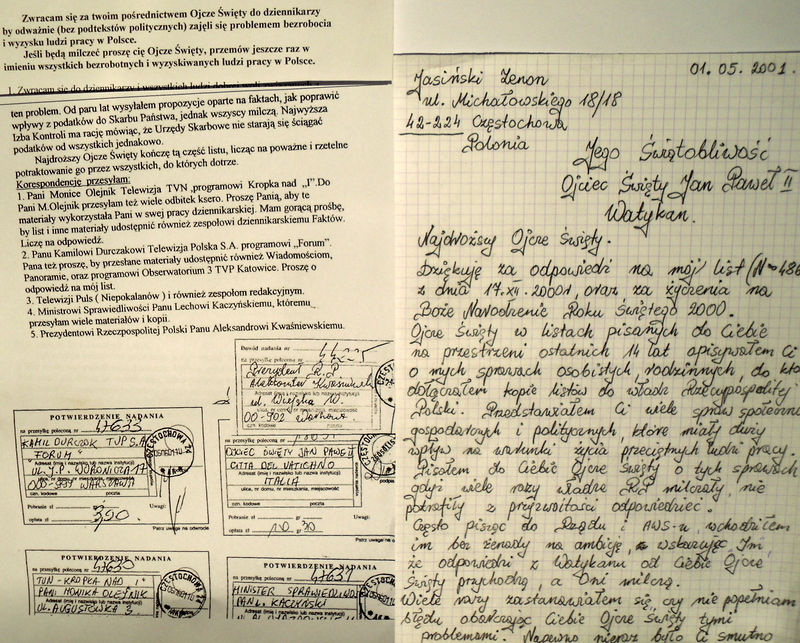 Zwracam się za twoim pośrednictwem Ojcze Święty do dziennikarzy
by odważnie (bez podtekstów politycznych) zajęli się problemem bezrobocia
i wyzysku ludzi pracy w Polsce.
Jeśli będą milczeć proszę cię Ojcze Święty, przemów jeszcze raz w
imieniu wszystkich bezrobotnych i wyzyskiwanych ludzi pracy w Polsce.
1. Zwracam się do dziennikarzy i wszystkich ludzi
ten problem. Od paru lat wysyłałem propozycje oparte na faktach, jak poprawić
wpływy z podatków do Skarbu Państwa, jednak wszyscy milczą. Najwyższa
Izba Kontroli ma rację mówiąc, że Urzędy Skarbowe nie starają się ściągać
podatków od wszystkich jednakowo.
Najdroższy Ojcze Święty kończę tą część listu, licząc na poważne i rzetelne
potraktowanie go przez wszystkich, do których dotrze.
Korespondencję przesyłam:
1. Pani Monice Olejnik Telewizja TVN ,programowi Kropka nad „I”.Do
Pani M.Olejnik przesyłam też wiele odbitek ksero. Proszę Panią, aby te
materiały wykorzystała Pani w swej pracy dziennikarskiej. Mam gorącą prośbę,
by list i inne materiały udostępnić również zespołowi dziennikarskiemu Faktów.
Liczę na odpowiedź.
2. Panu Kamilowi Durczakowi Telewizja Polska S.A. programowi „Forum”.
Pana też proszę, by przesłane materiały udostępnić również Wiadomościom,
Panoramie, oraz programowi Obserwatorium 3 TVP Katowice. Proszę o
odpowiedź na mój list.
3. Telewizji Puls ( Niepokalanów ) i również zespołom redakcyjnym.
4. Ministrowi Sprawiedliwości Panu Lechowi Kaczyńskiemu, któremu
przesyłam wiele materiałów i kopii.
5. Prezydentowi Rzeczpospolitej Polski Panu Aleksandrowi Kwaśniewskiemu.
Dowód nadania nr
na przesyłkę poleconą nr 44225
Prezydent R.P
Aleksander Kwaśniewski
ul. Wiejska
00-902 Warszawa
kod
miejscowość
POTWIERDZENIE NADANIA
na przesyłkę poleconą nr 47633
KAMIL DURCZOK TVP S.A
"FORUM"
Adresat (imię i nazwisko lub nazwa instytucji)
UL. J.P. WORONICZA 17
ulica, nr domu, nr mieszkania, miejscowość
00-999 WARSZAWA
ozn. kodowe poczta
Pobranie zł gr Uwagi:
opłata zł 3,90
Potrz uwaga na odwrocie
CZĘSTOCHOWA 24
na przesyłkę poleconą nr
OJCIEC ŚWIĘTY JAN PAWEŁ II
Adresat (imię i nazwisko lub nazwa instytucji)
CITTA DEL VATICANO
ulica, nr domu, nr mieszkania, miejscowość
ITALIA
ozn. kodowe poczta
Pobranie zł gr Uwagi:
opłata zł gr 30
POTWIERDZENIE NADANIA
na przesyłkę poleconą nr 47630
TVN - KROPKA NAD "I"
PANI MONIKA OLEJNIK
UL. AUGUSTÓWKA 3
CZĘSTOCHOWA
POTWIERDZENIE NADANIA
na przesyłkę poleconą nr 47631
MINISTER SPRAWIEDLIWO
PAN L. KACZYŃSKI
01. 05. 2001.
Jasiński Zenon
ul. Michałowskiego 18/18
42-224 Częstochowa
Polonia
Jego Świętobliwość
Ojciec Święty Jan Paweł II
Watykan.
Najdroższy Ojcze Święty.
Dziękuję za odpowiedź na mój list (N 486
z dnia 17. XII. 2000 1, oraz za życzenia na
Boże Narodzenie Roku Świętego 2000.
Ojcze Święty w listach pisanych do Ciebie
na przestrzeni ostatnich 14 lat opisywałem Ci
o mych sprawach osobistych, rodzinnych, do któ
dołączałem kopie listów do władz Rzeczypospolitej
Polski. Przedstawiałem Ci wiele spraw społeczno
gospodarczych i politycznych, które miały duży
wpływ na warunki życia przeciętnych ludzi pracy.
Pisałem do Ciebie Ojcze Święty o tych sprawach
gdyż wiele razy władze R.P milczały, nie
potrafiły z przyzwoitości odpowiedzieć.
Często pisząc do Rządu i AWS-u, wchodziłem
im bez żenady na ambicję, wskazując Im,
że odpowiedzi z Watykanu od Ciebie Ojcze
Święty przychodzą, a Oni milczą.
Wiele razy zastanawiałem się, czy nie popełniam
błędu obarczając Ciebie Ojcze Święty tymi
problemami. Napewno nieraz było Ci smutno